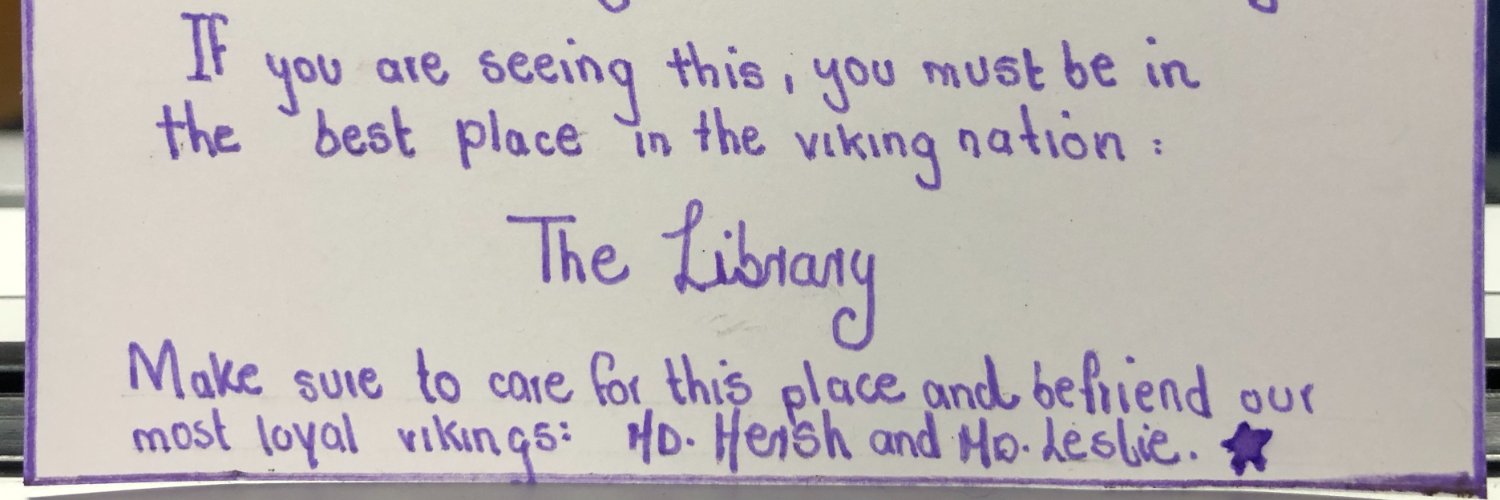 If you are seeing this, you must be in
the best place in the viking nation:
The Library
Make sure to care for this place and befriend our
most loyal vikings: Hersh and Leslie.